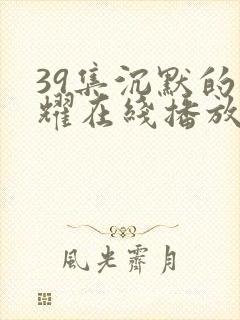 39集沉默的
耀在綫播放
風光霽月